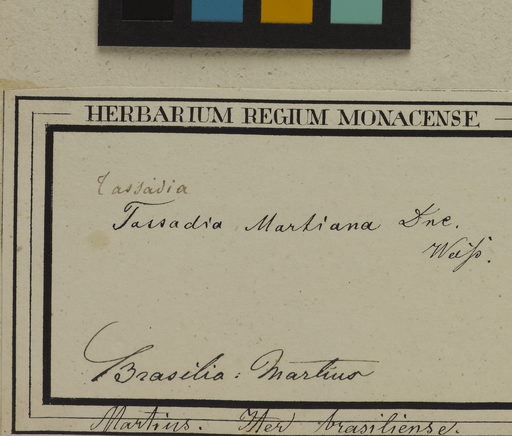 HERBARIUM REGIUM MONACENSE
Tassadia
Tassadia Martiana Dne.
Brasilia: Martius
Martius. Iter brasiliense.